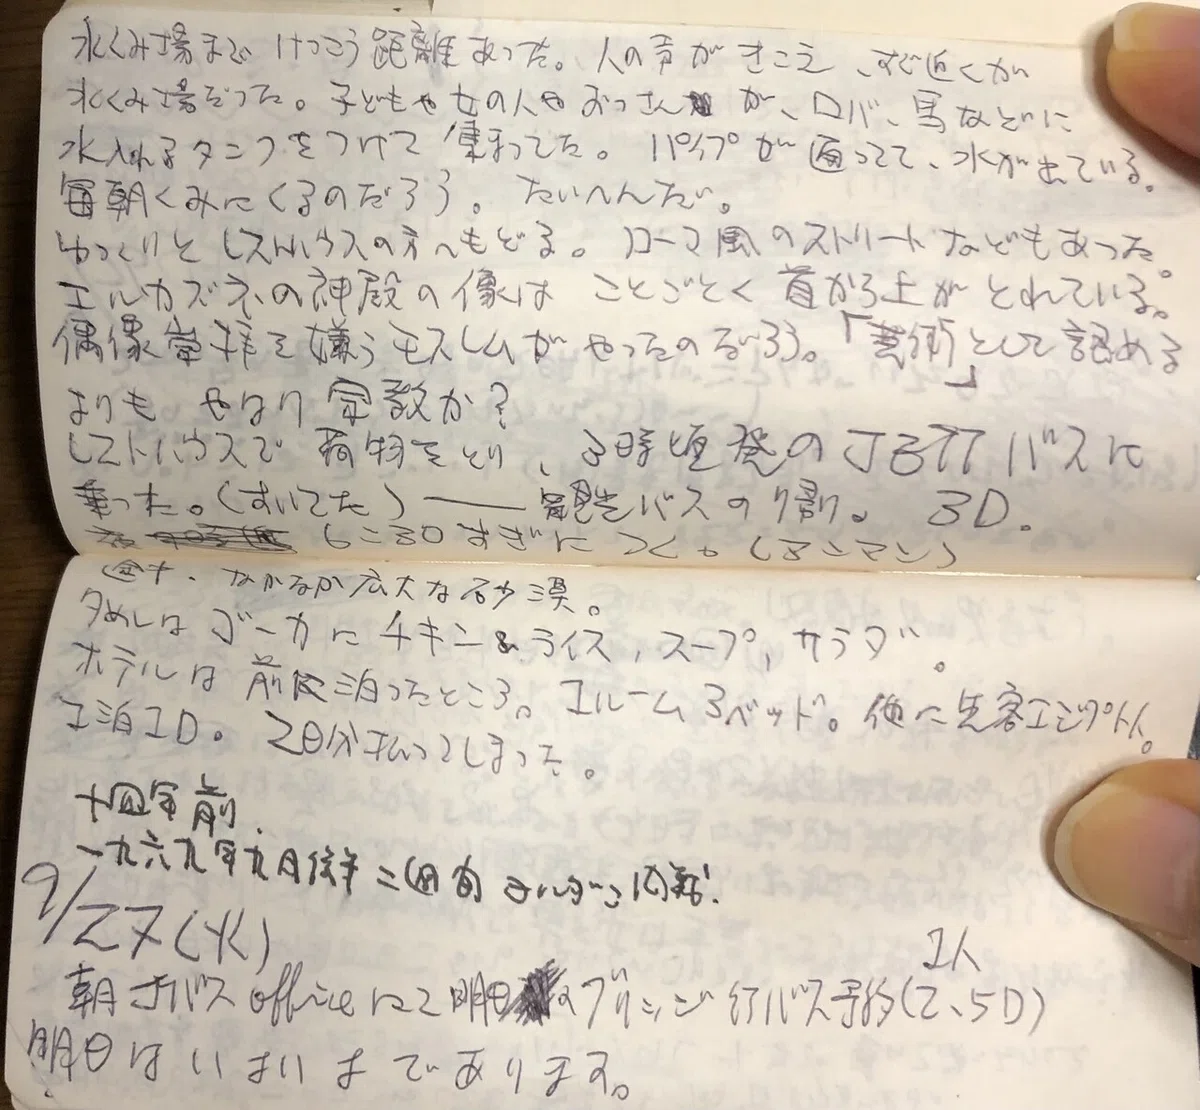 水くみ場まで けっこう距離あった。人の声がきこえ、すぐ近くが
水くみ場だった。子どもや女の人やおっさんが、ロバ、馬などに
水入れるタンクをつけて集まってた。パイプが通ってて、水が出ている。
毎朝くみにくるのだろう。たいへんだ。
ゆっくりとレストハウスの方へもどる。ローマ風のストリートなどもあった。
エルカズネの神殿の像は ことごとく首から上がとれている。
偶像崇拝を嫌うモスレムがやったのだろう。「芸術」として認める
よりも やはり宗教か?
レストハウスで荷物をとり、3時頃発のJETTバスに
乗った。(すいてた)——観光バスの割。3D。
6:30すぎにつく。(アンマン)
途中、なかなか広大な砂漠。
夕めしはゴーカにチキン&ライス,スープ,サラダ。
ホテルは前に泊ったところ。1ルーム3ベッド。他に先客エジプト人。
1泊1D。2日分払ってしまった。
十四年前.
一九六九年九月後半二週間 ヨルダン内戦!
9/27(火)
朝 バスofficeにて明日のブリッジ行バス予約(2.5D)
1人
明日はいよいよであります。